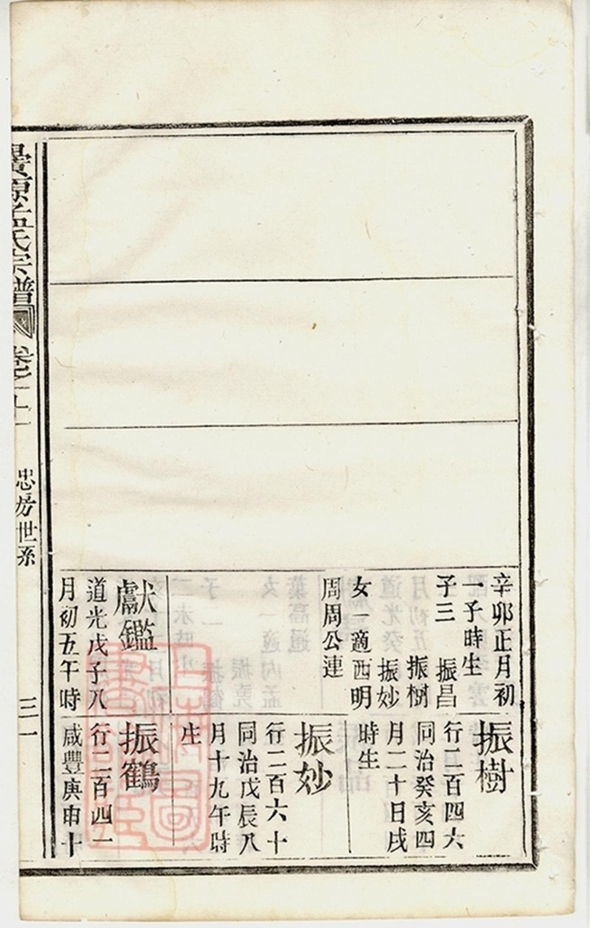 辛卯正月初
一子時生
子三　振昌
振樹
振妙
女一適西明
周周公連
獻鑑
道光戊子八
月初五午時
振樹
行二百四六
同治癸亥四
月二十日戌
時生
振妙
行二百六十
同治戊辰八
月十九午時
生
振鶴
行二百四一
咸豐庚申十
源孟氏宗譜
卷之十一
忠房世系
三一